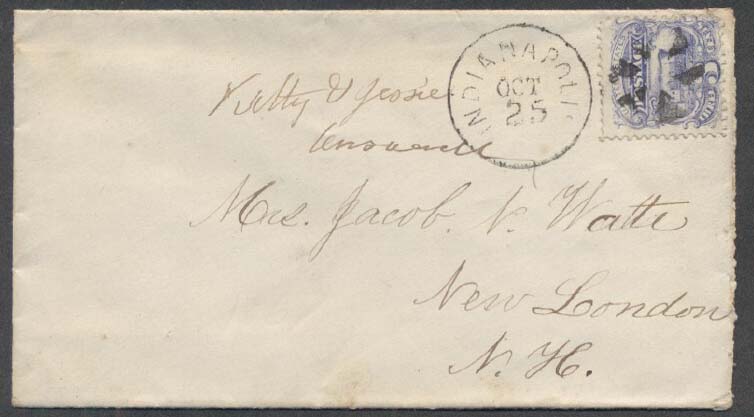 INDIANAPOLIS
OCT
25
Kitty & Jessie
Answered
Mrs. Jacob. N. Watte
New London
N. H.